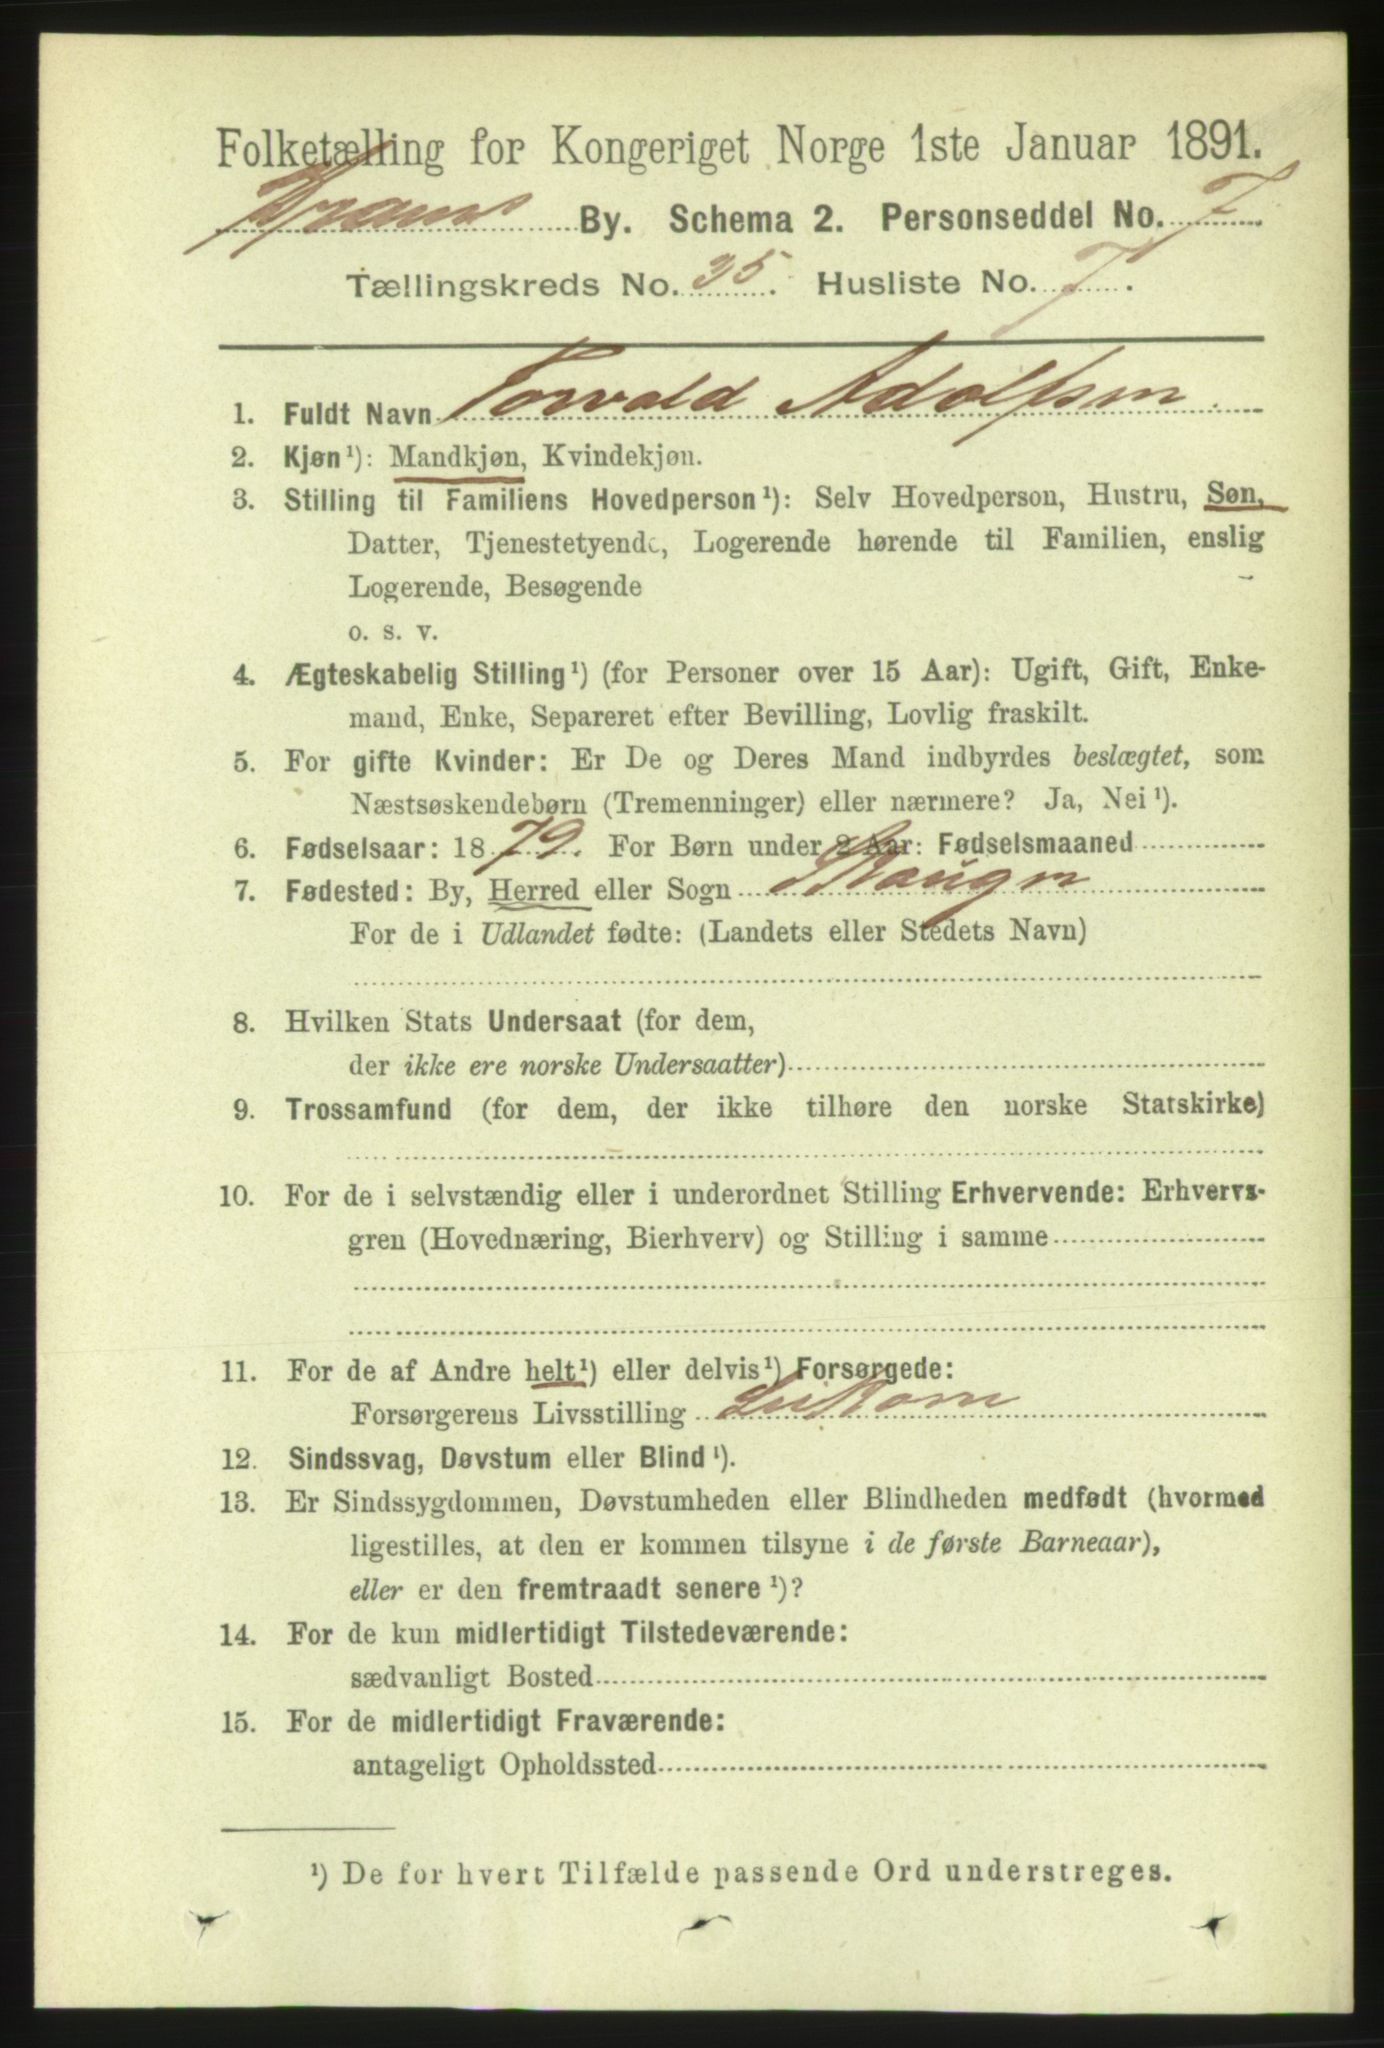 Folketælling for Kongeriget Norge 1ste Januar 1891.
Drams By. Schema 2. Personseddel No. 7
Tællingskreds No. 35. Husliste No. 7.
1. Fuldt Navn Torvald Adolfsen
2. Kjøn¹): Mandkjøn, Kvindekjøn.
3. Stilling til Familiens Hovedperson¹): Selv Hovedperson, Hustru, Søn,
Datter, Tjenestetyende, Logerende hørende til Familien, enslig
Logerende, Besøgende
o. s. v.
4. Ægteskabelig Stilling¹) (for Personer over 15 Aar): Ugift, Gift, Enke-
mand, Enke, Separeret efter Bevilling, Lovlig fraskilt.
5. For gifte Kvinder: Er De og Deres Mand indbyrdes beslægtet, som
Næstsøskendebørn (Tremenninger) eller nærmere? Ja, Nei¹).
6. Fødselsaar: 1879. For Børn under 2 Aar: Fødselsmaaned
7. Fødested: By, Herred eller Sogn Skauger
For de i Udlandet fødte: (Landets eller Stedets Navn)
8. Hvilken Stats Undersaat (for dem,
der ikke ere norske Undersaatter)
9. Trossamfund (for dem, der ikke tilhøre den norske Statskirke)
10. For de i selvstændig eller i underordnet Stilling Erhvervende: Erhvervs-
gren (Hovednæring, Bierhverv) og Stilling i samme
11. For de af Andre helt¹) eller delvis¹) Forsørgede:
Forsørgerens Livsstilling
12. Sindssvag, Døvstum eller Blind¹).
13. Er Sindssygdommen, Døvstumheden eller Blindheden medfødt (hvormed
ligestilles, at den er kommen tilsyne i de første Barneaar),
eller er den fremtraadt senere¹)?
14. For de kun midlertidigt Tilstedeværende:
sædvanligt Bosted
15. For de midlertidigt Fraværende:
antageligt Opholdssted
¹) De for hvert Tilfælde passende Ord understreges.